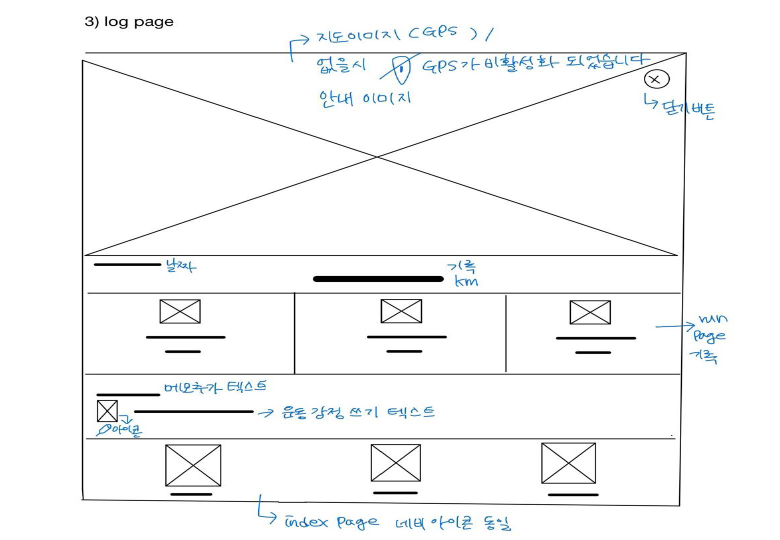 3) log page
지도이미지 (GPS) /
없을시 GPS가 비활성화 되었습니다
안내 이미지
닫기버튼
날짜
기록
km
run
page
기록
메모추가 텍스트
운동 감정 쓰기 텍스트
아이콘
index page 네비 아이콘 동일